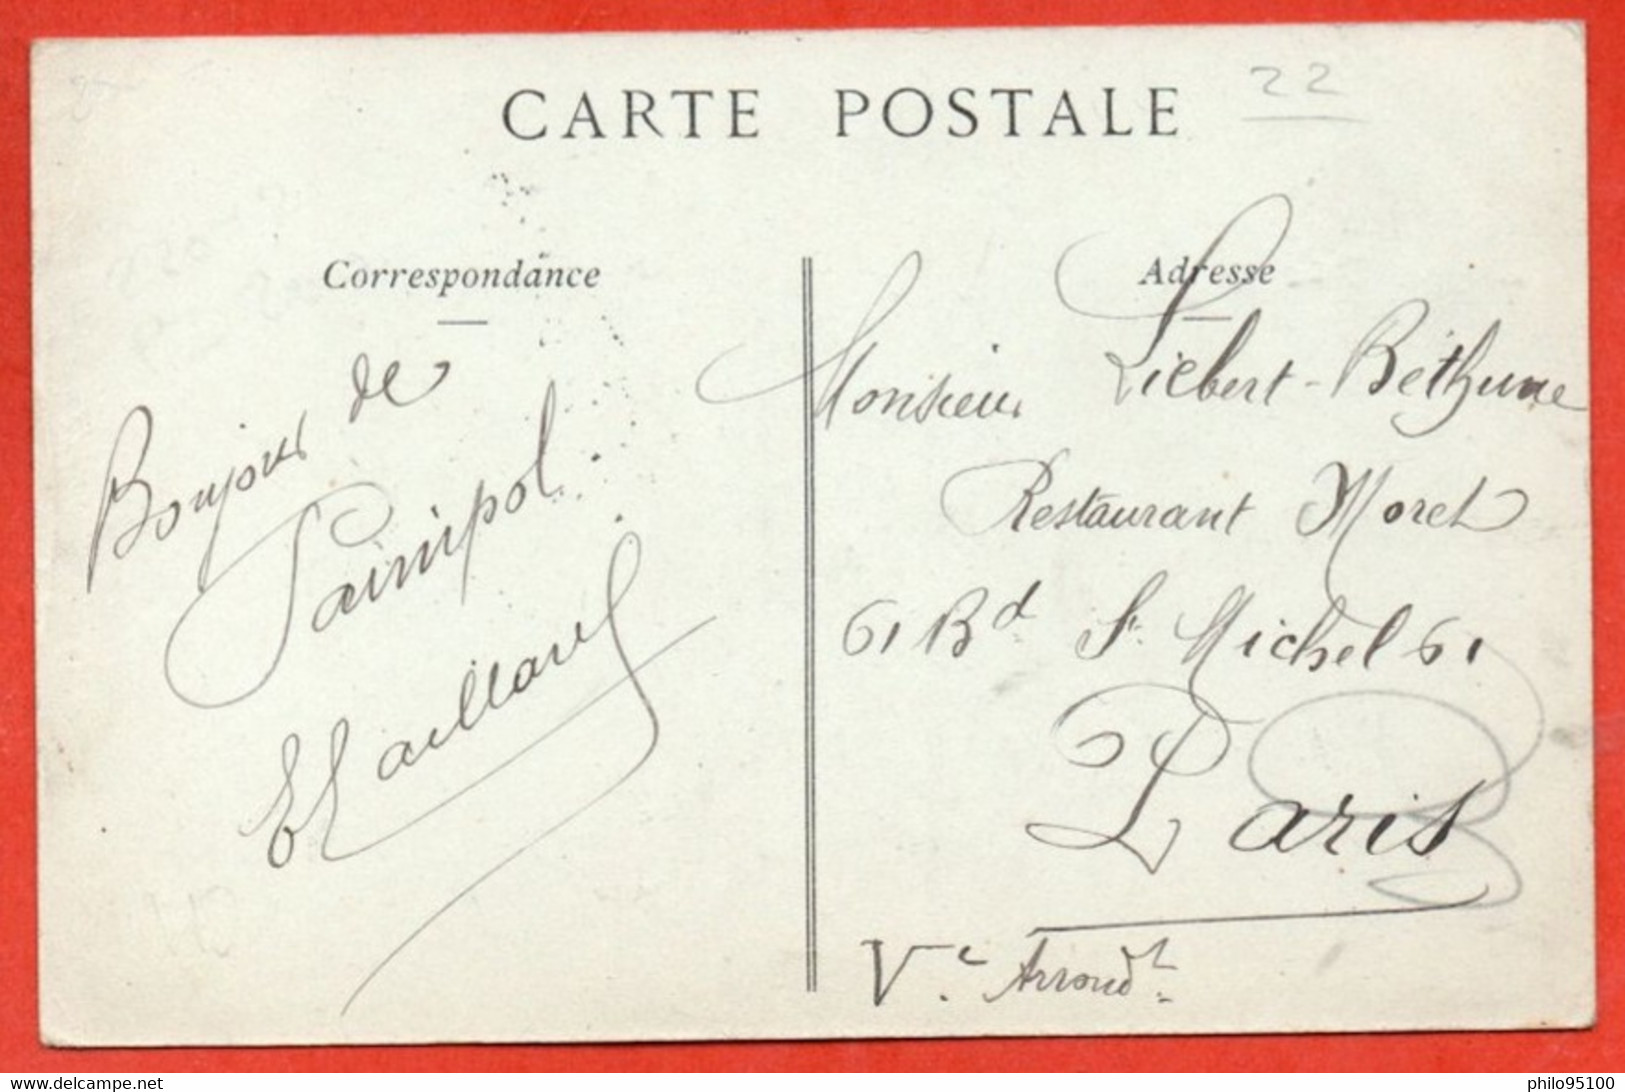 CARTE POSTALE
22
Correspondance
Bonjour de
Paimpol.
Adresse
Monsieur Liebert-Béthune
Restaurant Moret
61 Bd St. Michel 61
Paris
Ve Arrondt
www.delcampe.net
philo95100